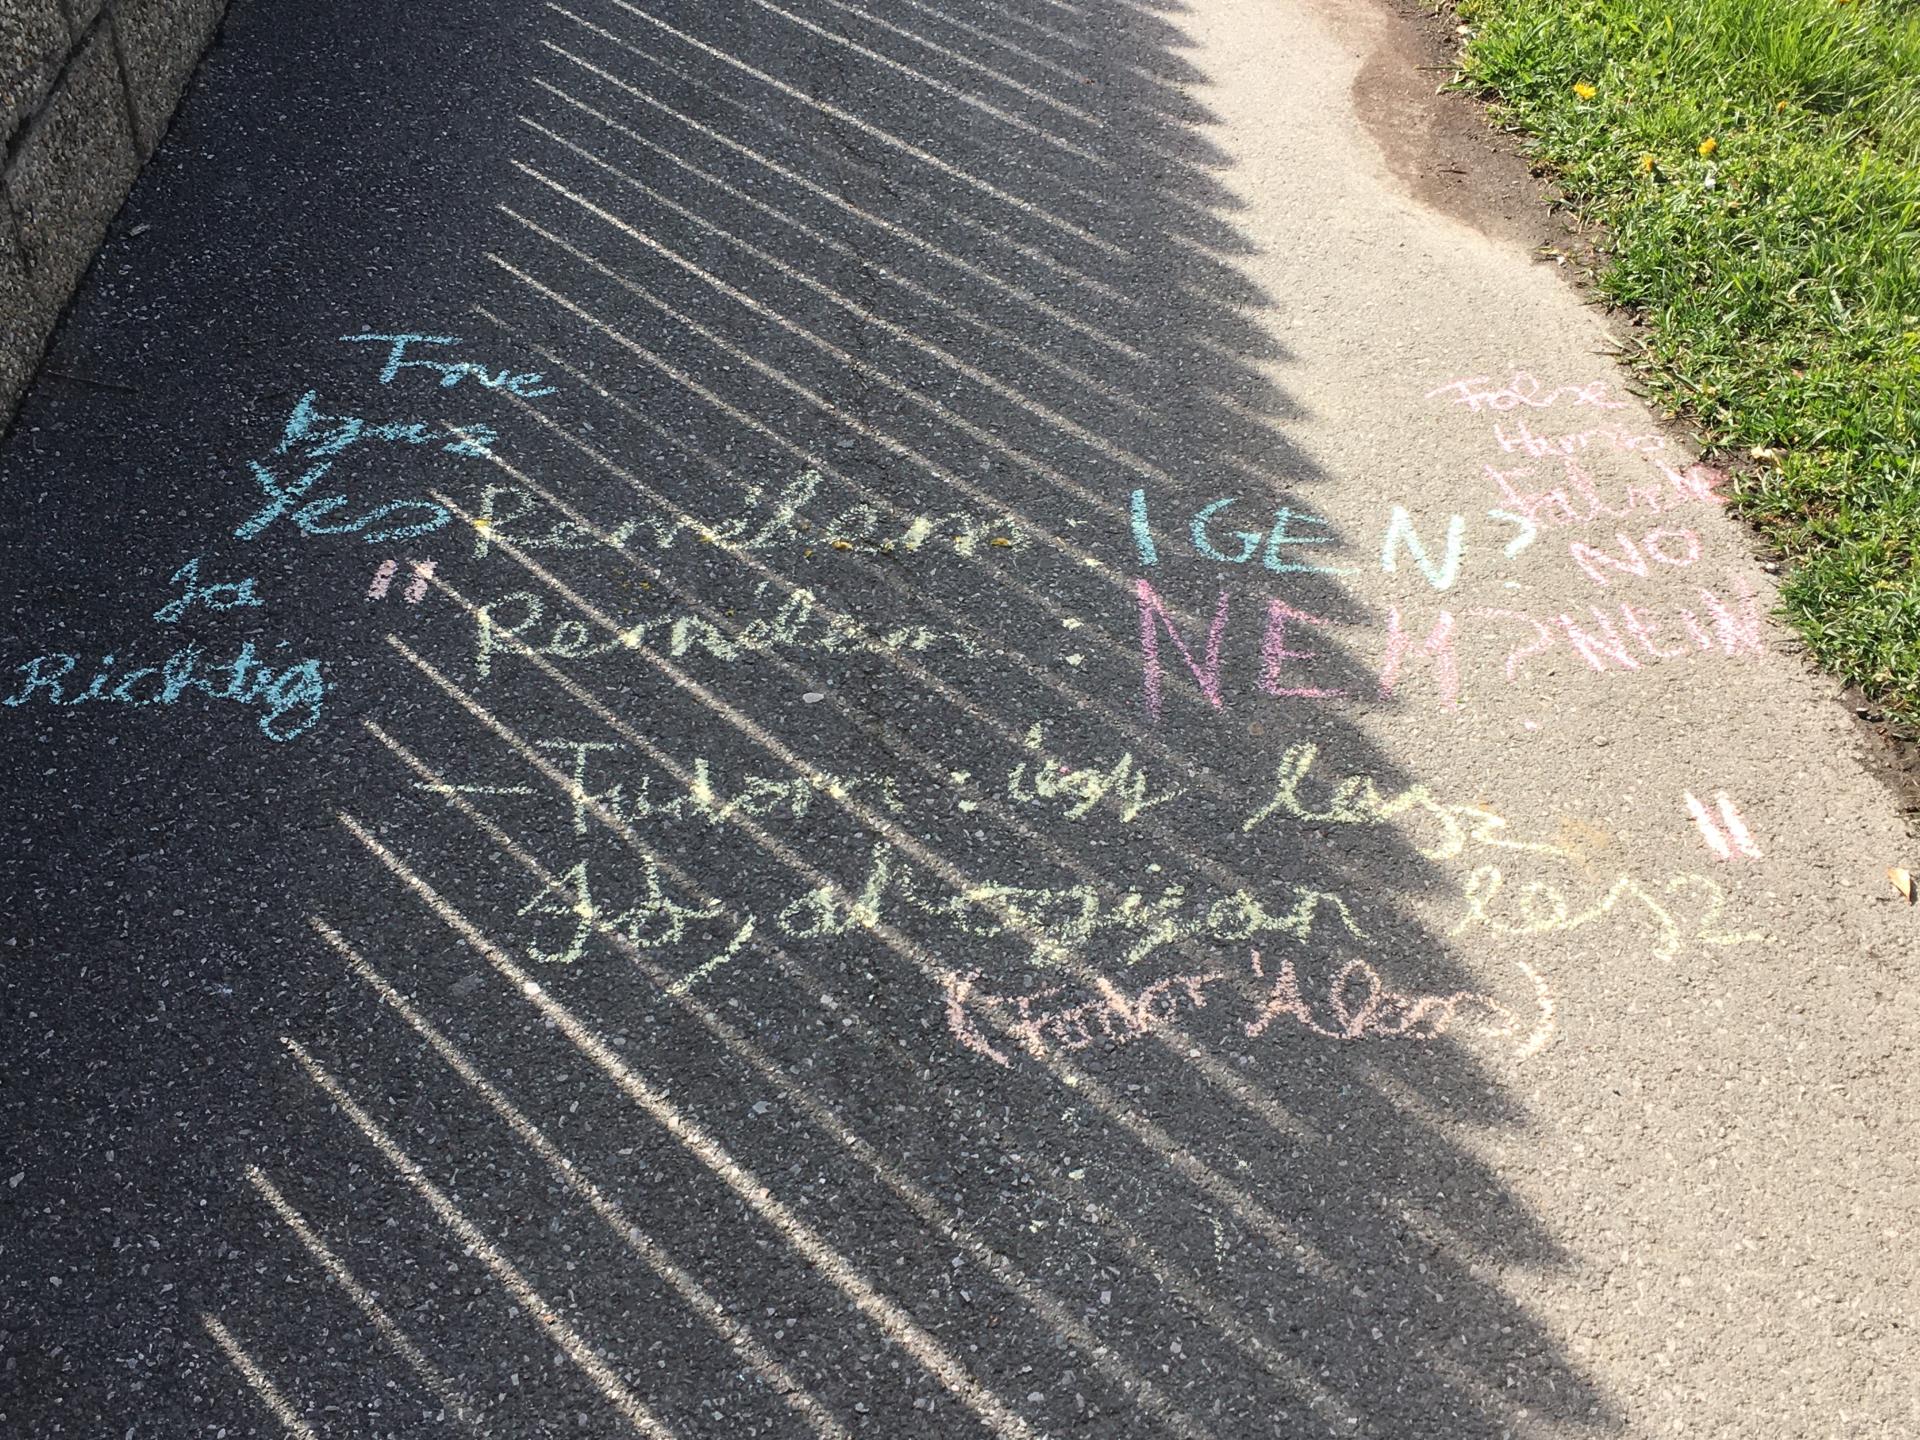 True
Igaz
Yes
Ja
Richtig
" Remélem : IGEN?
Remélem : NEM?
- Tudom : úgy lesz
Jó, ahogyan lesz "
(Fodor Ákos)
False
Hamis
Falsch
NO
NEIN